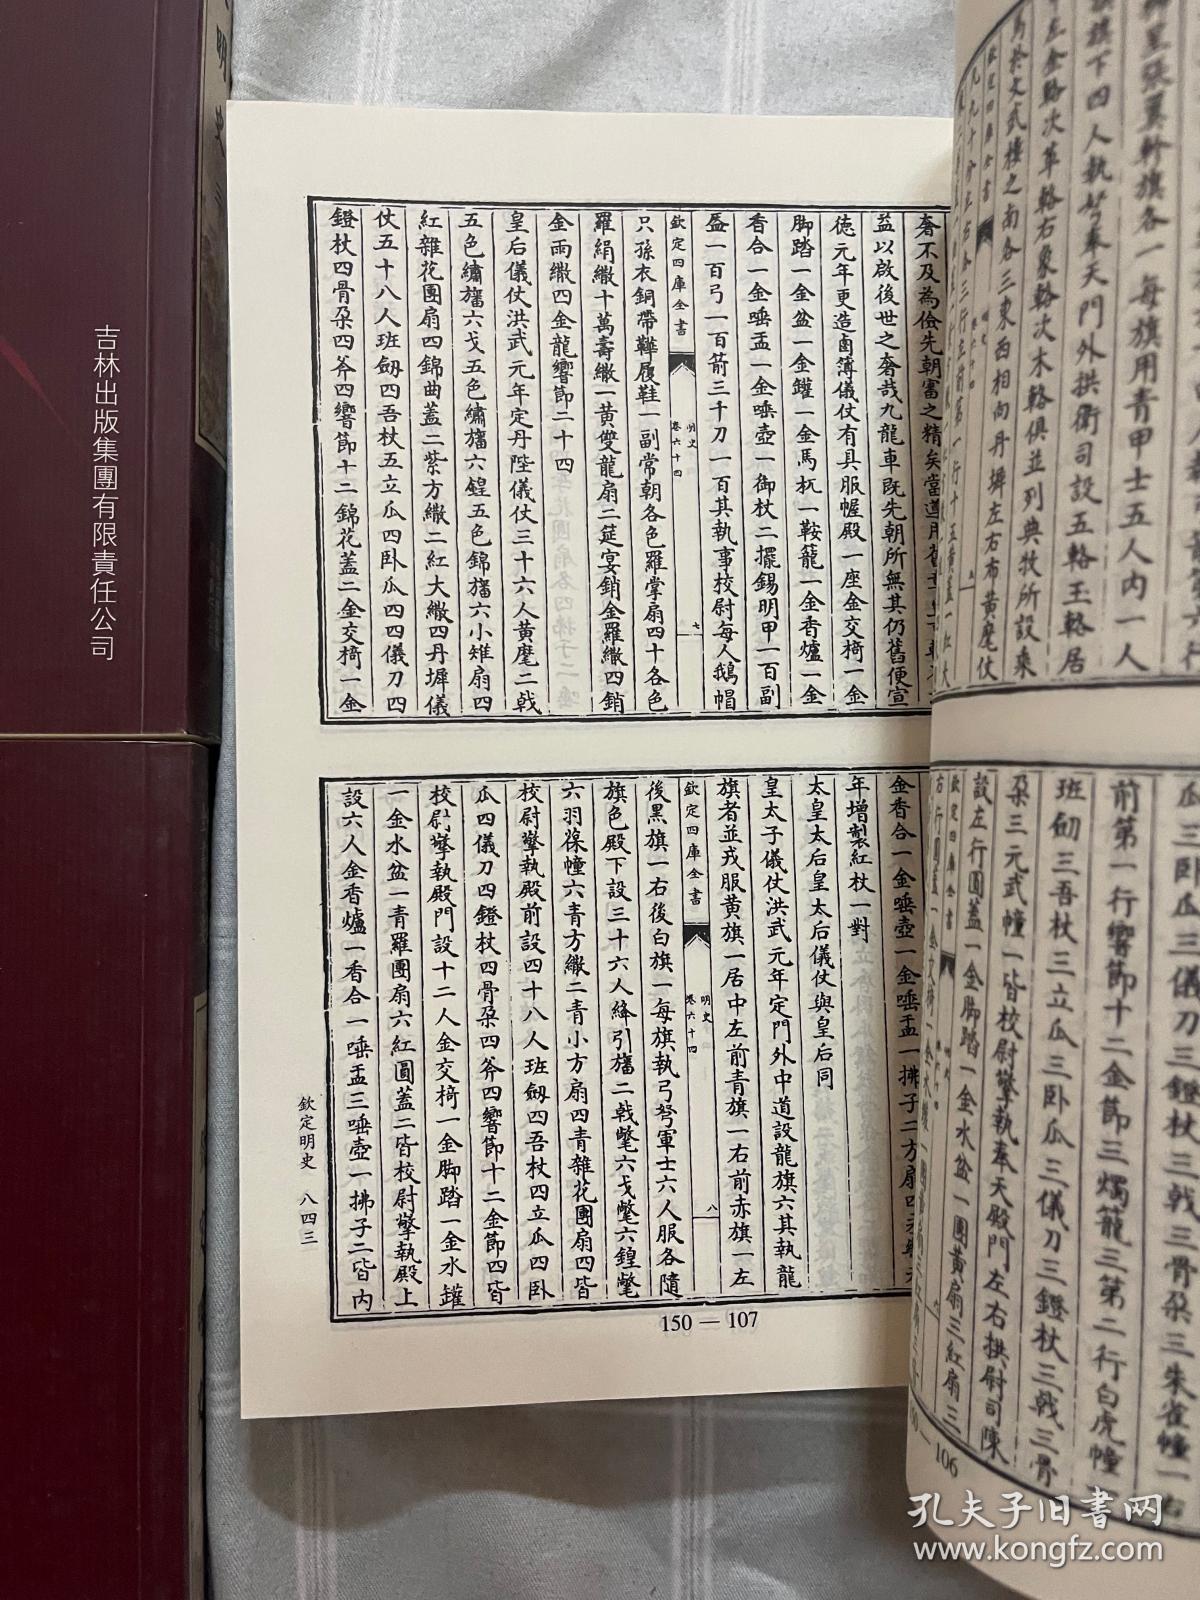 奢不及為儉先朝審之精矣當遵用
益以啟後世之奢哉九龍車既先朝所無其仍舊便宣
德元年更造鹵簿儀仗有具服幄殿一座金交椅一金
脚踏一金盆一金罐一金馬杌一鞍籠一金香爐一金
香合一金唾盂一金唾壺一御杖二擺錫明甲一百副
盔一百弓一百箭三千刀一百其執事校尉每人鵝帽
欽定四庫全書
明史
卷六十四
七
只孫衣銅帶鞾履鞋一副常朝各色羅掌扇四十各色
羅絹繖十萬壽繖一黃雙龍扇二筵宴銷金羅繖四銷
金雨繖四金龍響節二十四
皇后儀仗洪武元年定丹陛儀仗三十六人黃麾二戟
五色繡旛六戈五色繡旛六鍠五色錦旛六小雉扇四
紅雜花團扇四錦曲蓋二紫方繖二紅大繖四丹墀儀
仗五十八人班劔四吾杖五立瓜四卧瓜四四儀刀四
鐙杖四骨朶四斧四響節十二錦花蓋二金交椅一金
金香合一金唾壺一金唾盂一拂子二方扇
年增製紅杖一對
太皇太后皇太后儀仗與皇后同
皇太子儀仗洪武元年定門外中道設龍旗六其執龍
旗者並戎服黃旗一居中左前青旗一右前赤旗一左
欽定四庫全書
明史
卷六十四
八
後黑旗一右後白旗一每旗執弓弩軍士六人服各隨
旗色殿下設三十六人絳引旛二戟氅六戈氅六鍠氅
六羽葆幢六青方繖二青小方扇四青雜花團扇四皆
校尉擎執殿前設四十八人班劔四吾杖四立瓜四卧
瓜四儀刀四鐙杖四骨朶四斧四響節十二金節四皆
校尉擎執殿門設十二人金交椅一金脚踏一金水罐
一金水盆一青羅團扇六紅圓蓋二皆校尉擎執殿上
設六人金香爐一香合一唾盂三唾壺一拂子二皆內
欽定明史 八四三
150—107
張翼軫旗各一每旗用青甲士五人內一人
旗下四人執弩奉天門外拱衛司設五輅玉輅居
左金輅次革輅右象輅次木輅俱並列典牧所設乘
馬於文武樓之南各三東西相向丹墀左右布黃麾仗
瓜三卧瓜三儀刀三鐙杖三戟三骨朶三朱雀幢一右
前第一行響節十二金節三燭籠三第二行白虎幢一
班劒三吾杖三立瓜三卧瓜三儀刀三鐙杖三戟三骨
朶三元武幢一皆校尉擎執奉天殿門左右拱尉司陳
設左行圓蓋一金脚踏一金水盆一團黃扇三紅扇三
欽定四庫全書
106
吉林出版集團有限責任公司
明史
孔夫子旧书网
www.kongfz.com